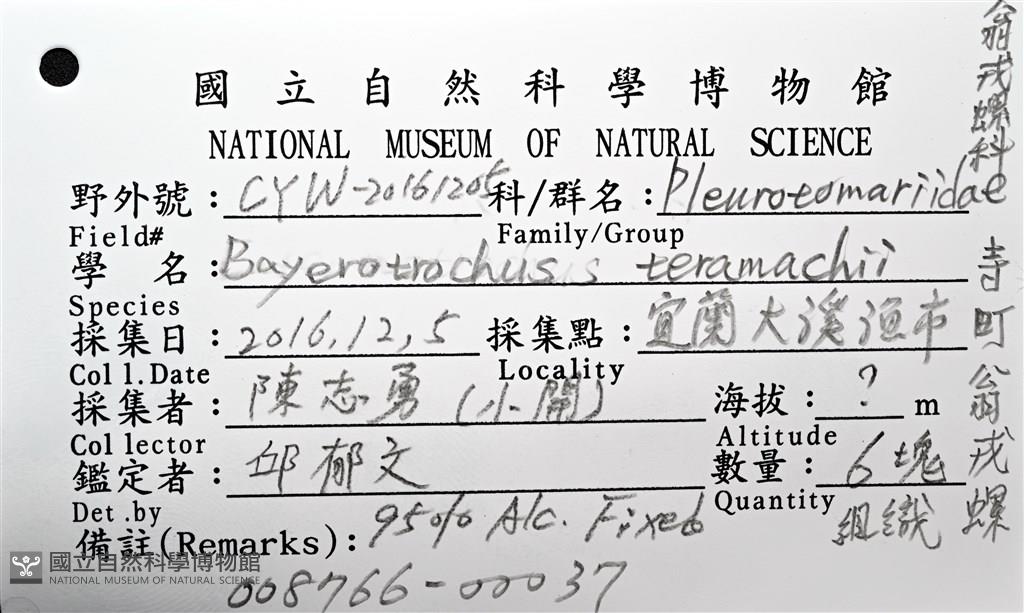 國立自然科學博物館
NATIONAL MUSEUM OF NATURAL SCIENCE
野外號：CYW-20161205 科/群名：Pleurotomariidae
Field# Family/Group
學 名：Bayerotrochus teramachii
Species
採集日：2016,12,5 採集點：宜蘭大溪漁市
Coll.Date Locality
採集者：陳志勇(小開) 海拔：? m
Collector Altitude
鑑定者：邱郁文 數量：6塊
Det.by Quantity 組織
備註(Remarks)：95% Alc. Fixed
008766-00037
翁戎螺科
寺町翁戎螺
國立自然科學博物館
NATIONAL MUSEUM OF NATURAL SCIENCE